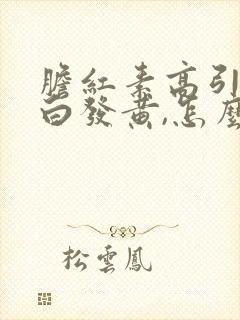 膽紅素高引
白發黃,怎麼
松雲鳳